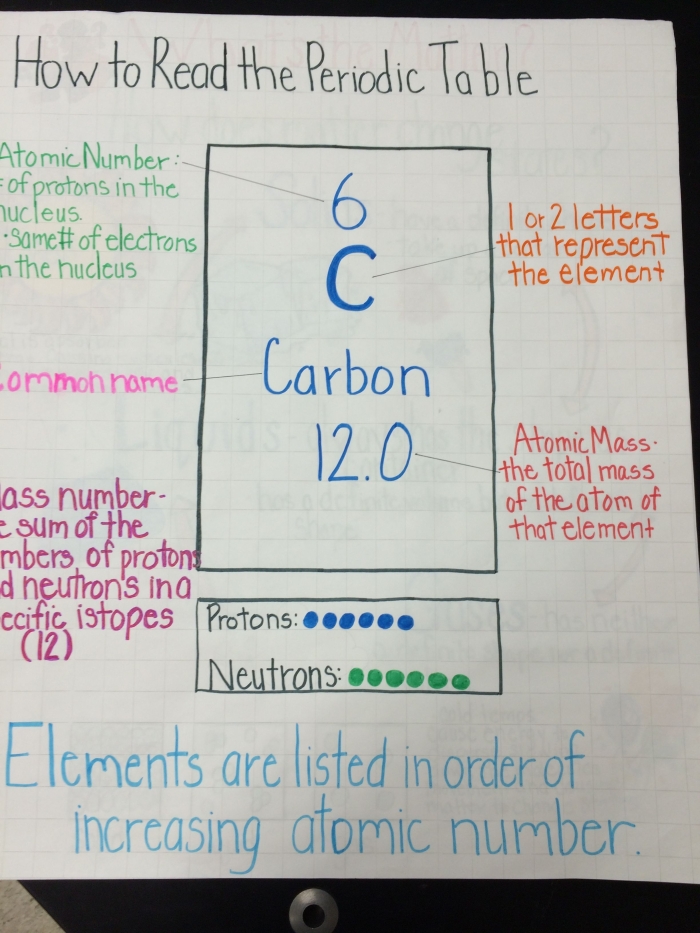 How to Read the Periodic Table
Atomic Number:
of protons in the
nucleus.
·Same# of electrons
n the nucleus
6
C
1 or 2 letters
that represent
the element
Common name
Carbon
12.0
Atomic Mass·
the total mass
of the atom of
that element
ass number-
e sum of the
mbers of protons
d neutrons in a
ecific istopes
(12)
Protons:
Neutrons:
Elements are listed in order of
increasing atomic number.